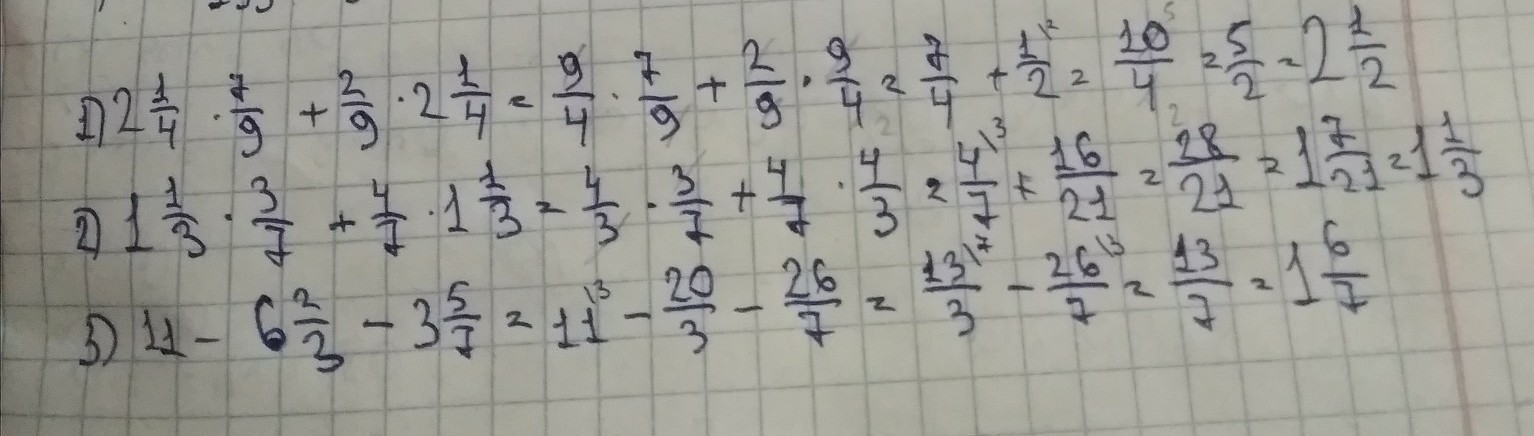 1) 2 1/4 · 7/9 + 2/9 · 2 1/4 = 9/4 · 7/9 + 2/9 · 9/4 = 7/4 + 1/2 \2 = 10/4 = 5/2 = 2 1/2
2) 1 1/3 · 3/7 + 4/7 · 1 1/3 = 4/3 · 3/7 + 4/7 · 4/3 = 4/7 \3 + 16/21 = 28/21 = 1 7/21 = 1 1/3
3) 11 - 6 2/3 - 3 5/7 = 11 \3 - 20/3 - 26/7 = 13/3 \7 - 26/7 \3 = 13/7 = 1 6/7